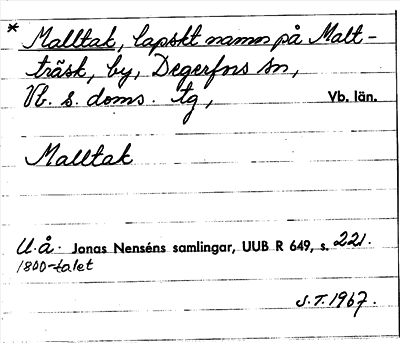 * Malltak, lapskt namn på Malt-
träsk, by, Degerfors sn,
Vb. s. doms. tg, Vb. län.
Malltak
U.å. Jonas Nenséns samlingar, UUB R 649, s. 221.
1800-talet
S.T. 1967.